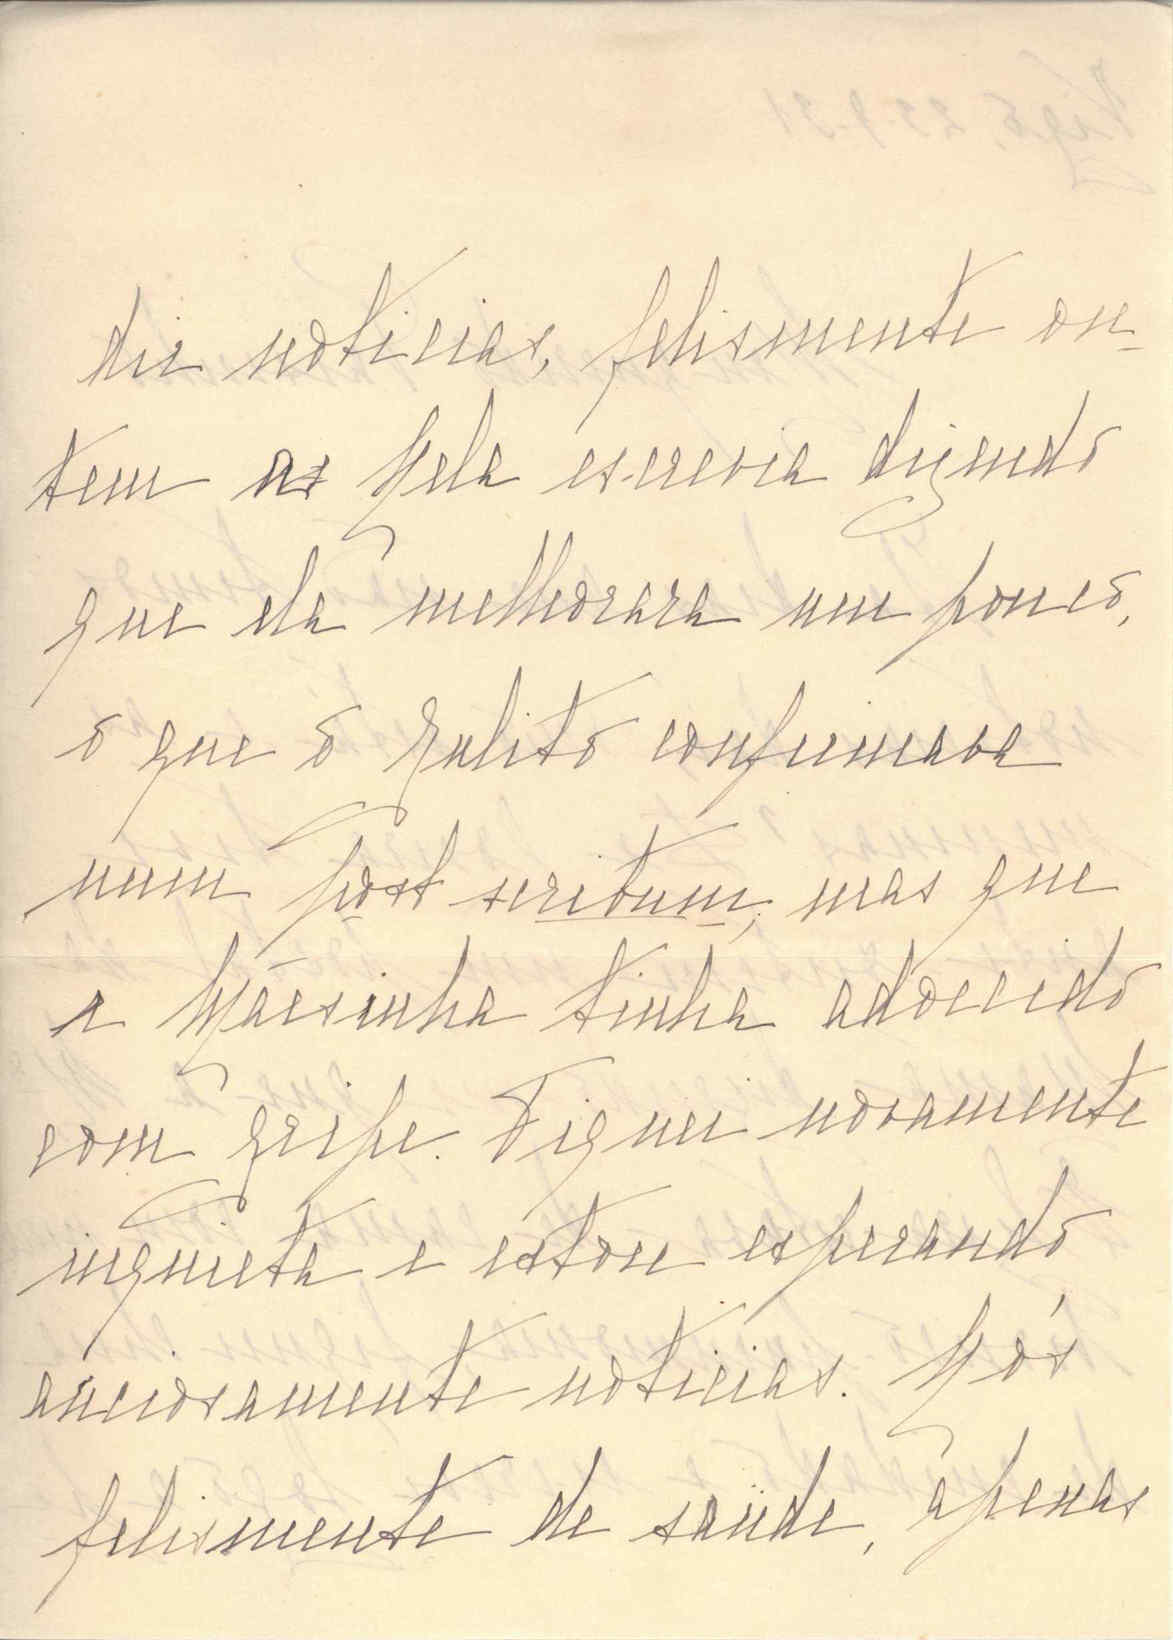 dir noticias, felismente on-
tem as Mela escrevia dizendo
que ela melhorara um pouco,
o que o Julito confirmava
num post scritum, mas que
a Mãesinha tinha adoecido
com gripe. Fiquei novamente
inquieta e estou esperando
anciosamente noticias. Nós
felismente de saúde, apenas